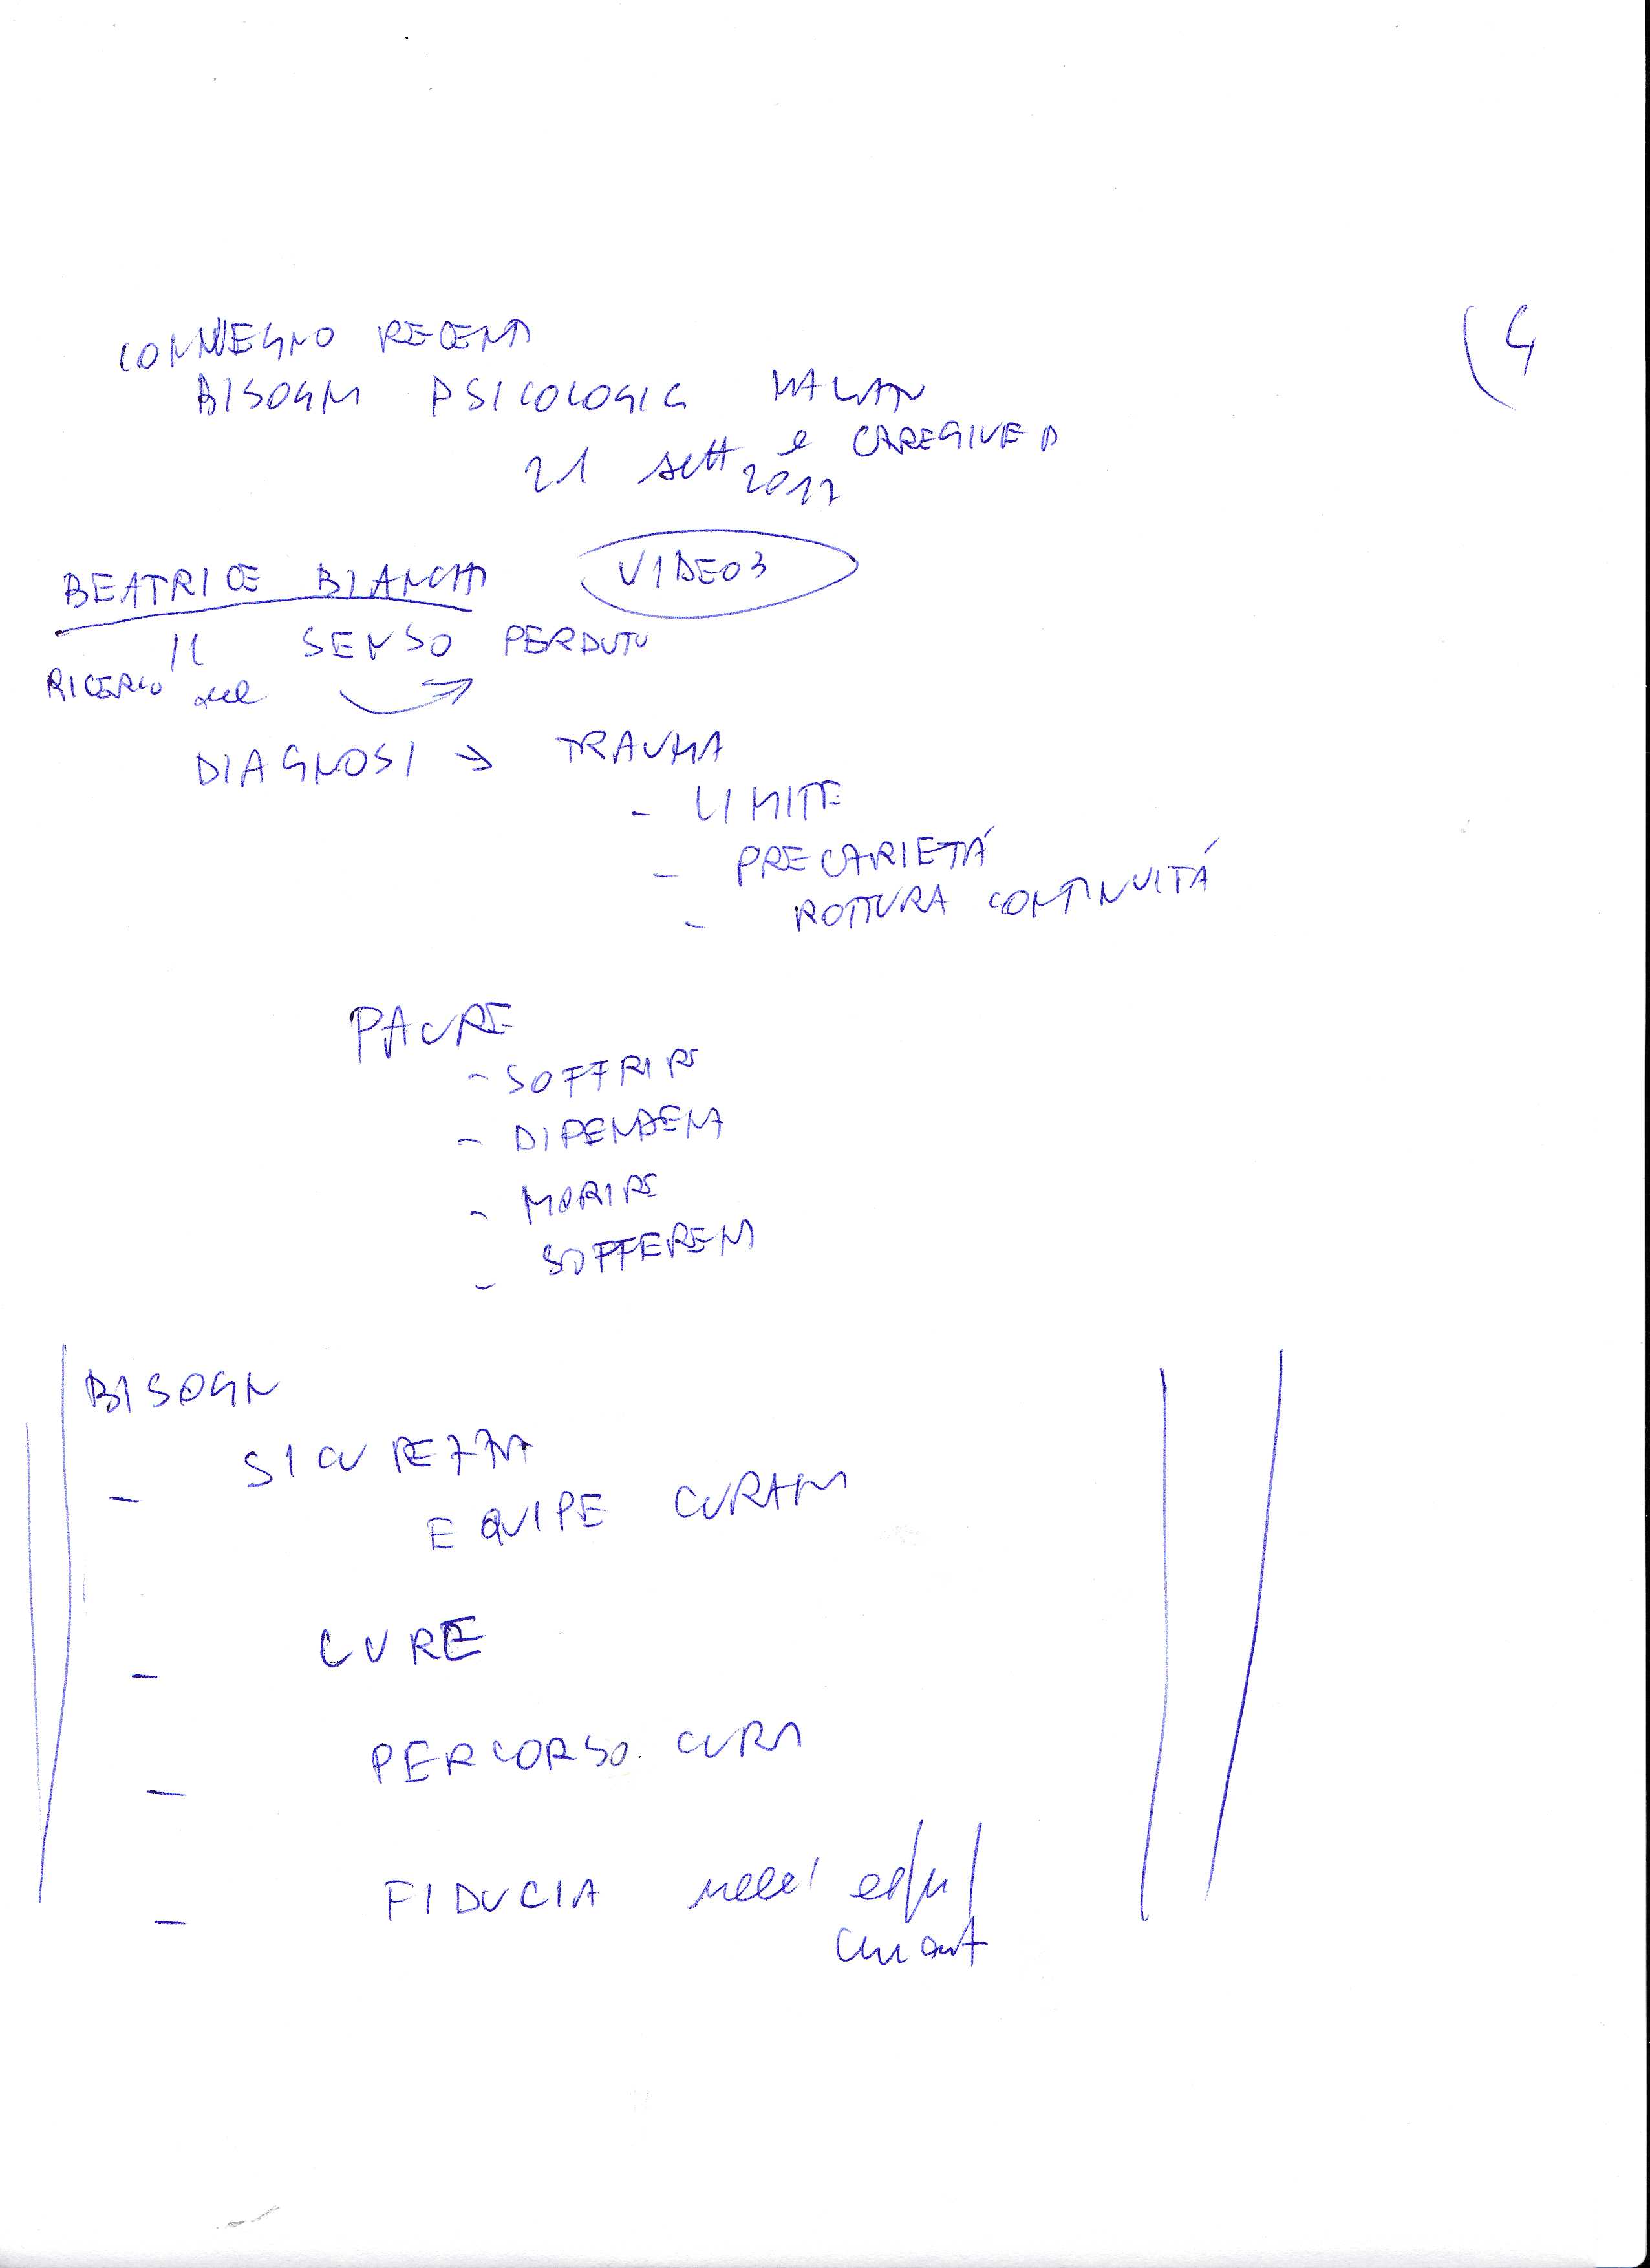 CONVEGNO RECENTI
(4
BISOGNI PSICOLOGICI MALATI
e CAREGIVER
21 sett 2017
BEATRICE BIANCHI VIDEO 3
IL SENSO PERDUTO
RICERCO nel
DIAGNOSI → TRAUMA
- LIMITE
- PRECARIETÁ
- ROTTURA CONTINUITÁ
PAURE
- SOFFRIRE
- DIPENDENZA
- MORIRE
- SOFFERENZA
BISOGNI
- SICUREZZA
EQUIPE CURANTI
- CURE
- PERCORSO CURA
- FIDUCIA nell'
curant